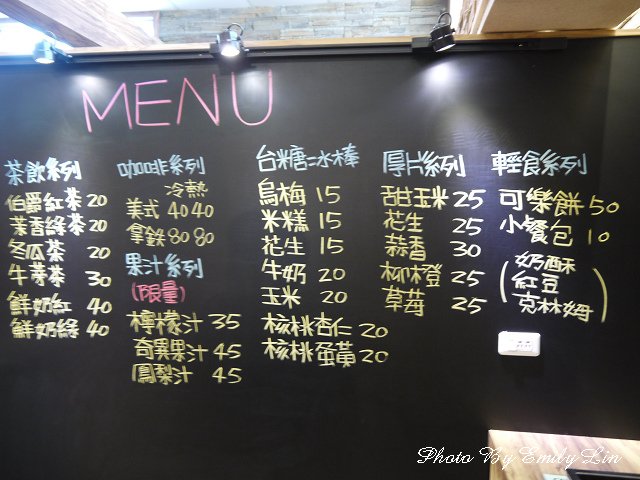 MENU
茶飲系列
伯爵紅茶 20
茉香綠茶 20
冬瓜茶 20
牛蒡茶 30
鮮奶紅 40
鮮奶綠 40
咖啡系列
冷熱
美式 40 40
拿鐵 80 80
果汁系列
(限量)
檸檬汁 35
奇異果汁 45
鳳梨汁 45
台糖冰棒
烏梅 15
米糕 15
花生 15
牛奶 20
玉米 20
核桃杏仁 20
核桃蛋黃 20
厚片系列
甜玉米 25
花生 25
蒜香 30
柳橙 25
草莓 25
輕食系列
可樂餅 50
小餐包 10
(奶酥
紅豆
克林姆)
Photo By Emily Lin